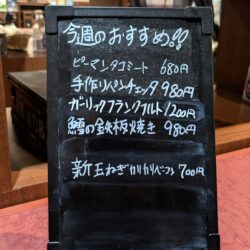 今週のおすすめ!!
ピーマンタコミート 680円
手作りパンチェッタ 980円
ガーリックフランクフルト 1200円
鱈の鉄板焼き 980円
新玉ねぎカリカリベーコン 700円